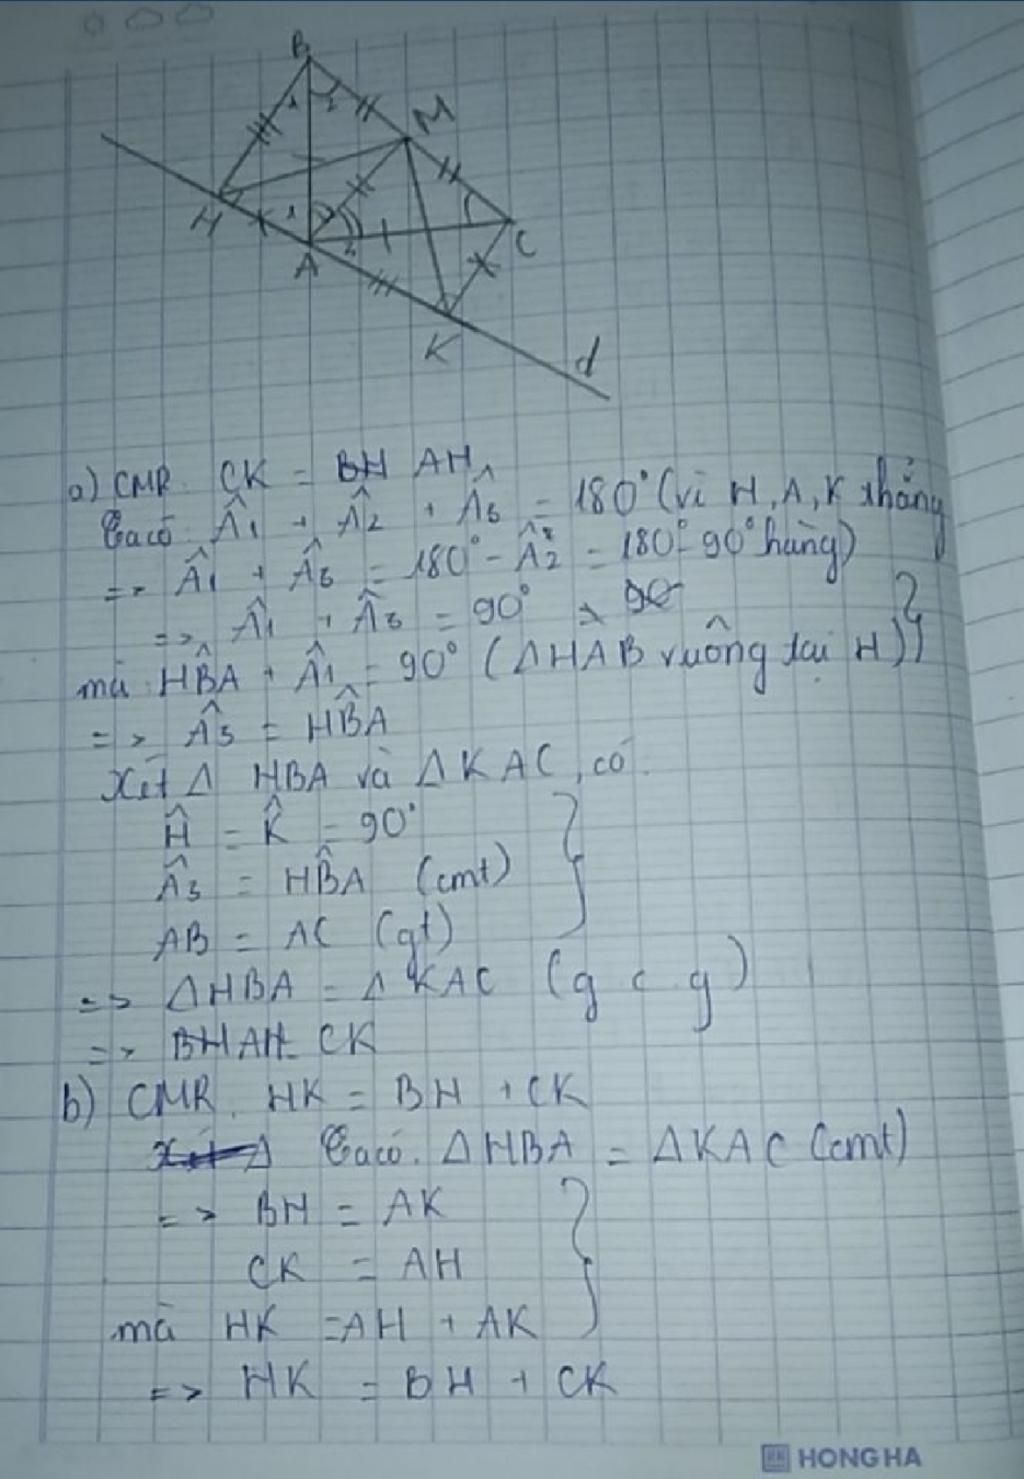 B
1 2
M
H 1 2 3 C
A
K
d
a) CMR. CK = BH AH
Ta có: Â1 + Â2 + Â3 = 180° (vì H, A, K thẳng
=> Â1 + Â3 = 180° - Â2 = 180° - 90° hàng)
=> Â1 + Â3 = 90° 90
mà HB̂A + Â1 = 90° (ΔHAB vuông tại H)
=> Â3 = HB̂A
Xét Δ HBA và ΔKAC, có:
Ĥ = K̂ = 90°
Â3 = HB̂A (cmt)
AB = AC (gt)
=> ΔHBA = ΔKAC (g c g)
=> BH AH = CK
b) CMR. HK = BH + CK
Xét Δ Ta có. ΔHBA = ΔKAC (cmt)
=> BH = AK
CK = AH
mà HK = AH + AK
=> HK = BH + CK
HONG HA